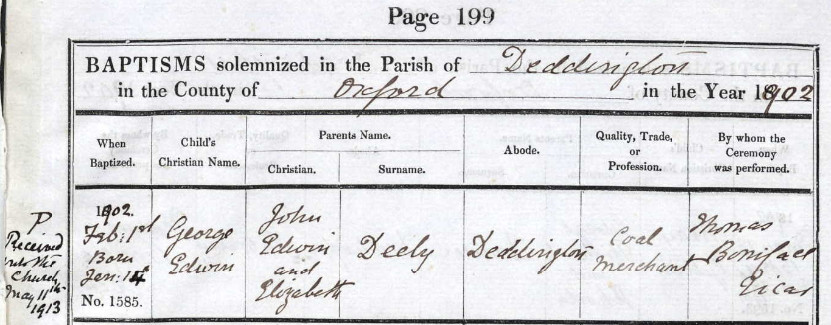 Page 199
BAPTISMS solemnized in the Parish of Deddington
in the County of Oxford in the Year 1902
When Baptized.
Child's Christian Name.
Parents Name.
Christian.
Surname.
Abode.
Quality, Trade, or Profession.
By whom the Ceremony was performed.
1902.
Feb: 1st
Born
Jan: 14
No. 1585.
George
Edwin
John
Edwin
and
Elizabeth
Deely
Deddington
Coal
Merchant
Thomas
Boniface
Vicar
P
Received
into the
Church
May 11th
1913